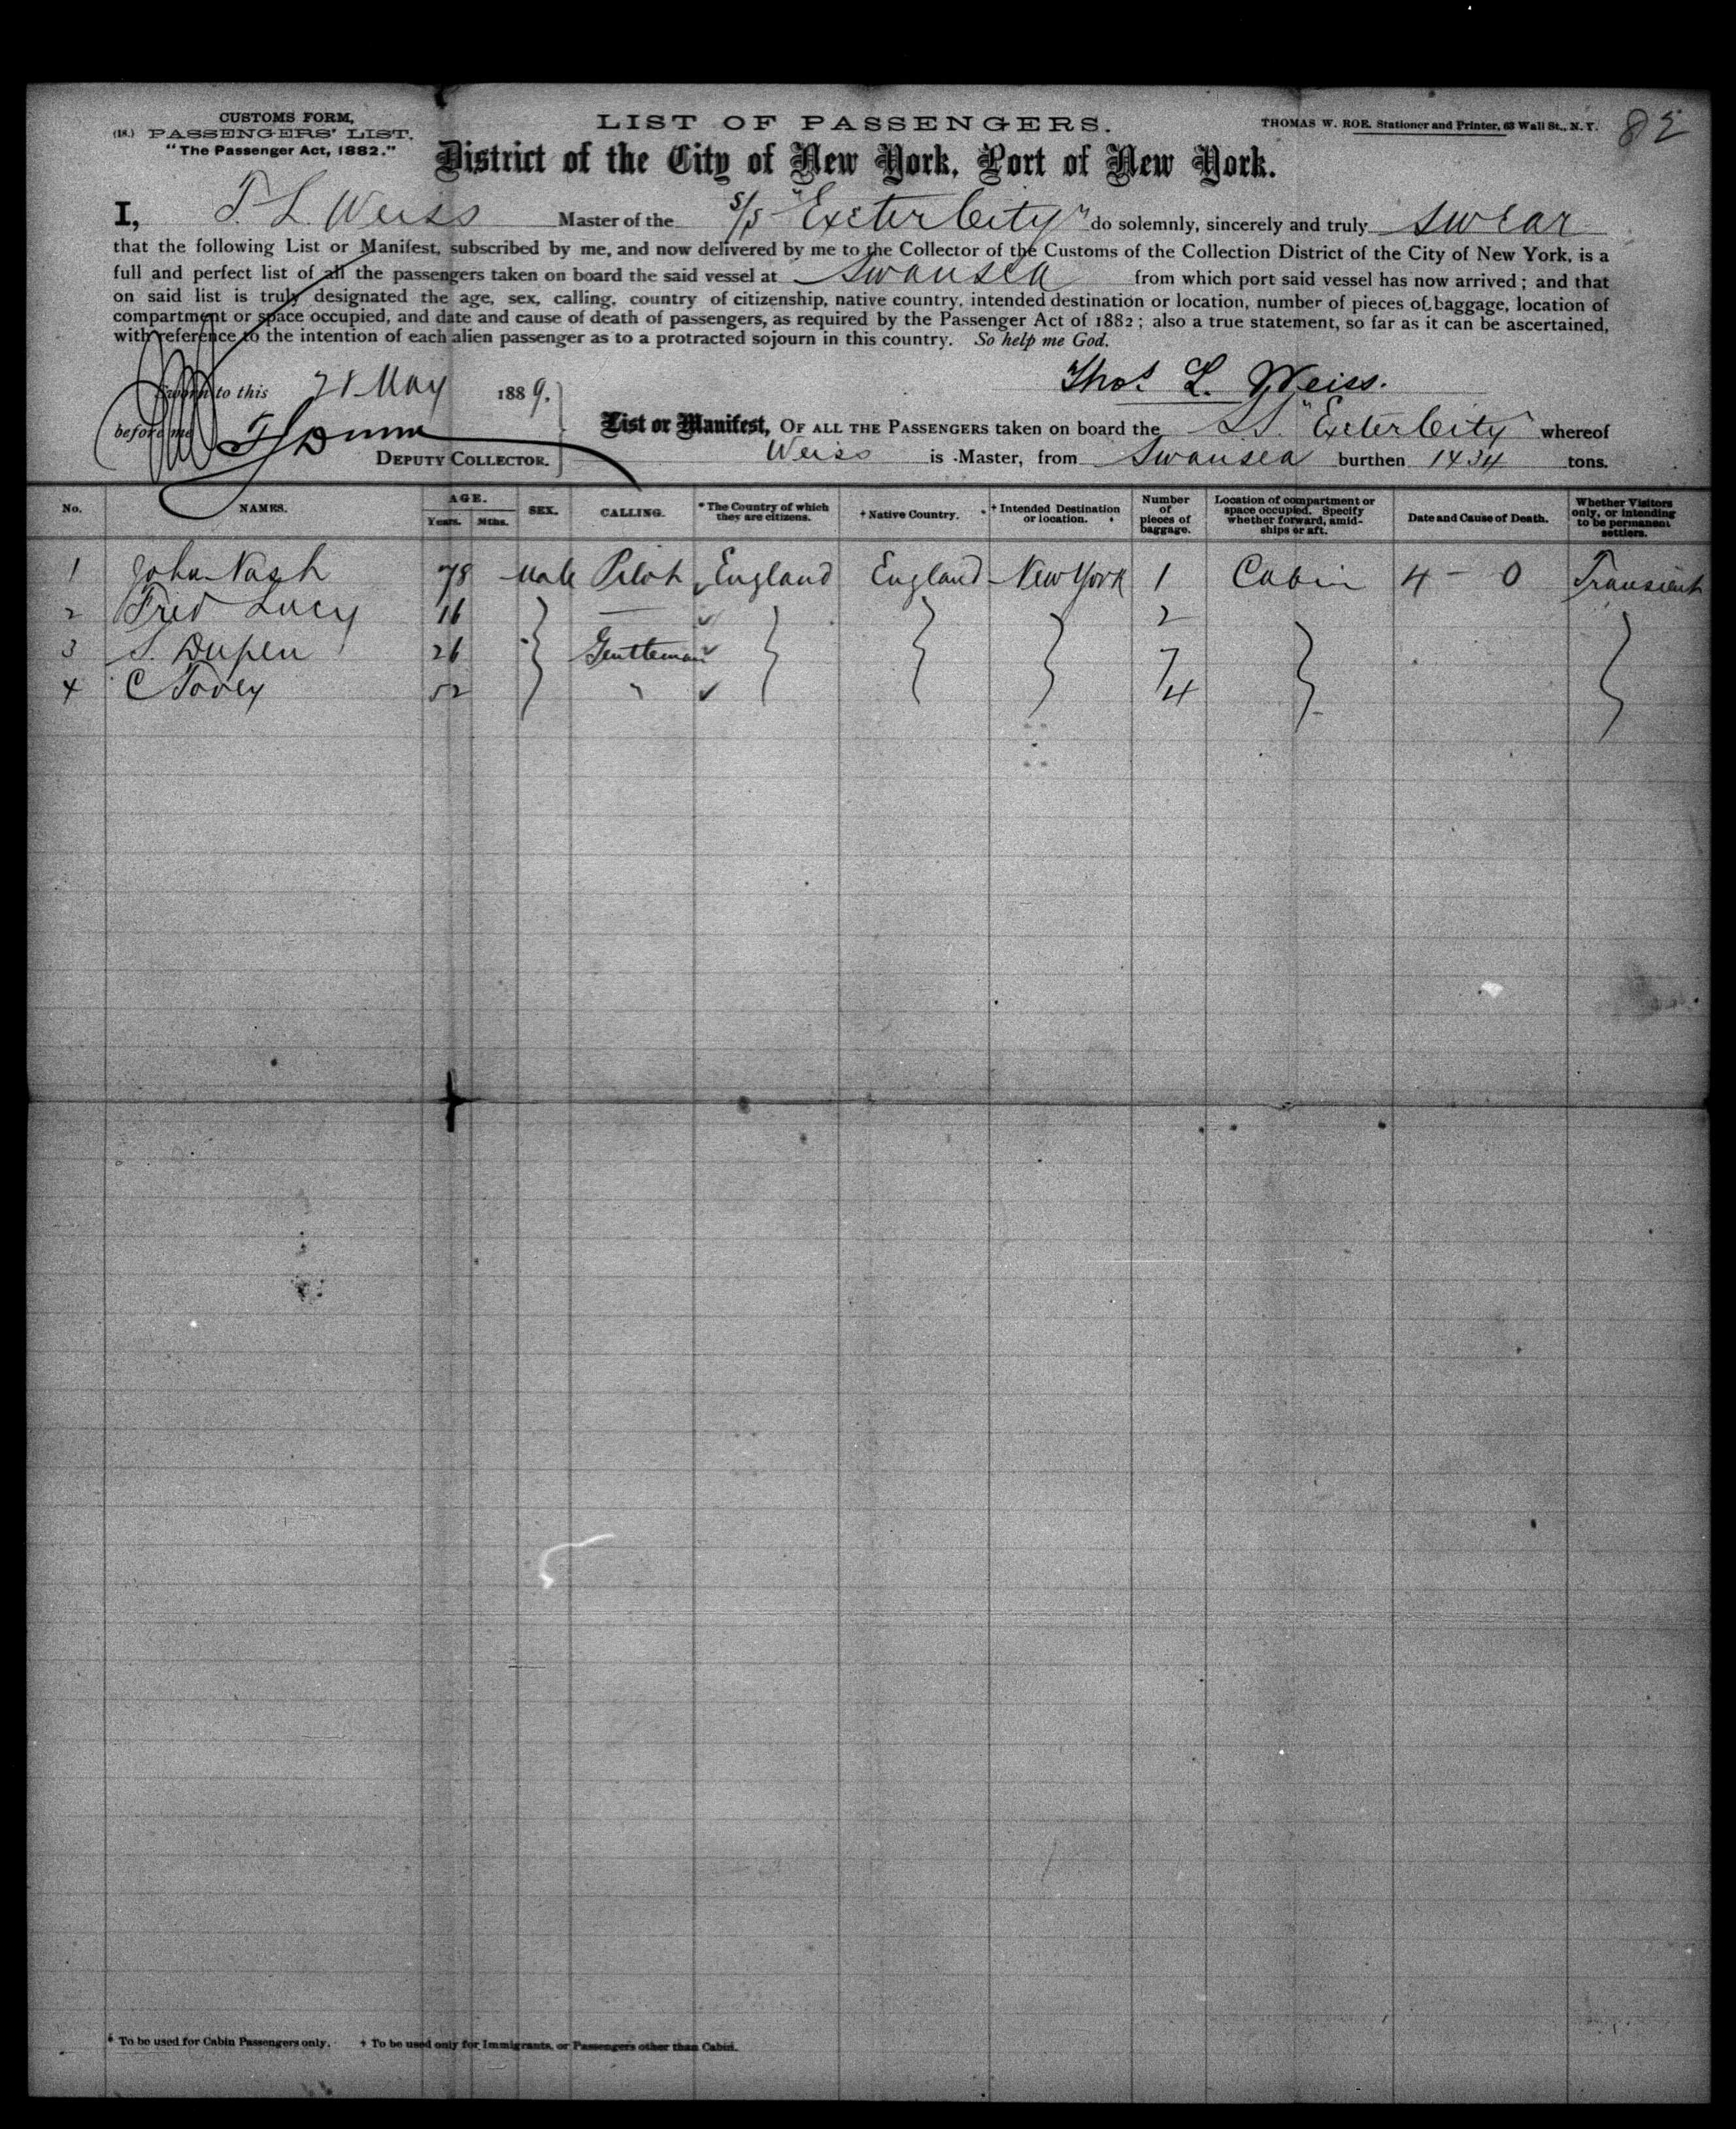 CUSTOMS FORM,
(18.) PASSENGERS' LIST.
"The Passenger Act, 1882."
LIST OF PASSENGERS.
THOMAS W. ROE, Stationer and Printer, 63 Wall St., N. Y.
82
District of the City of New York, Port of New York.
I, T. L. Weiss Master of the S/S "Exeter City" do solemnly, sincerely and truly swear
that the following List or Manifest, subscribed by me, and now delivered by me to the Collector of the Customs of the Collection District of the City of New York, is a
full and perfect list of all the passengers taken on board the said vessel at Swansea from which port said vessel has now arrived; and that
on said list is truly designated the age, sex, calling, country of citizenship, native country, intended destination or location, number of pieces of baggage, location of
compartment or space occupied, and date and cause of death of passengers, as required by the Passenger Act of 1882; also a true statement, so far as it can be ascertained,
with reference to the intention of each alien passenger as to a protracted sojourn in this country. So help me God.
Sworn to this 21 May 1889.
Thos. L. Weiss.
before me
DEPUTY COLLECTOR.
List or Manifest, OF ALL THE PASSENGERS taken on board the SS. "Exeter City" whereof
Weiss is Master, from Swansea burthen 1434 tons.
No. NAMES. AGE. Years. Mths. SEX. CALLING. * The Country of which they are citizens. † Native Country. † Intended Destination or location. Number of pieces of baggage. Location of compartment or space occupied. Specify whether forward, amidships or aft. Date and Cause of Death. Whether Visitors only, or intending to be permanent settlers.
1 John Nash 78 Male Pilot England England New York 1 Cabin 4 - 0 Transient
2 Fred Lucy 16 — 2
3 S. Dupen 26 Gentleman 7
4 C Tovey 52 " 4
* To be used for Cabin Passengers only. † To be used only for Immigrants, or Passengers other than Cabin.